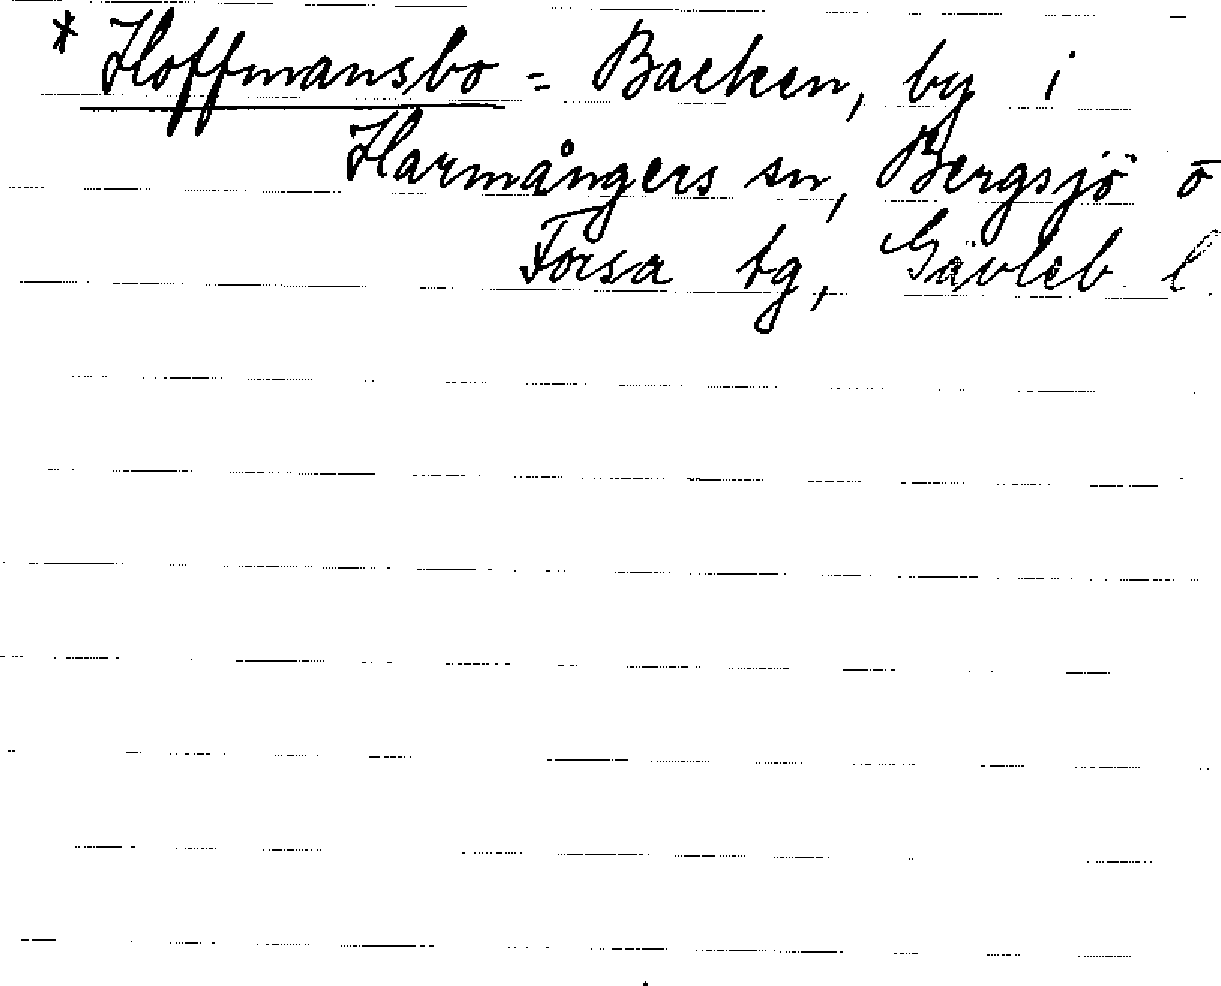 * Hoffmansbo = Backen, by i
Harmångers sn, Bergsjö o
Forsa tg, Gävleb l.